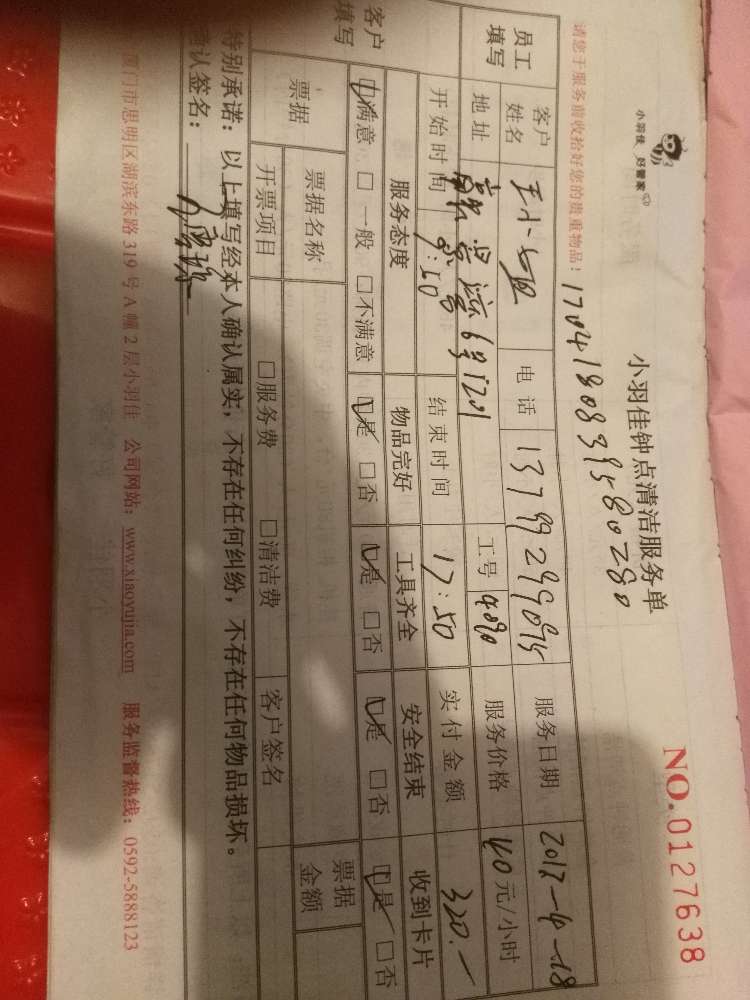 小羽佳 好管家
小羽佳钟点清洁服务单
NO.0127638
请您于服务前收拾好您的贵重物品！
员工填写
客户姓名 王小姐 电话 服务日期 2017-4-18
地址 6号1201 工号 4090 服务价格 40元/小时
开始时间 结束时间 17:50 实付金额 320.-
客户填写
服务态度 物品完好 工具齐全 安全结束 收到卡片
☑满意 □一般 □不满意 ☑是 □否 ☑是 □否 ☑是 □否 ☑是 □否
票据 票据名称 票据金额
开票项目 □服务费 □清洁费 客户签名
特别承诺：以上填写经本人确认属实，不存在任何纠纷，不存在任何物品损坏。
确认签名：
厦门市思明区湖滨东路319号A幢2层小羽佳 公司网站：www.xiaoyujia.com 服务监督热线：0592-5888123